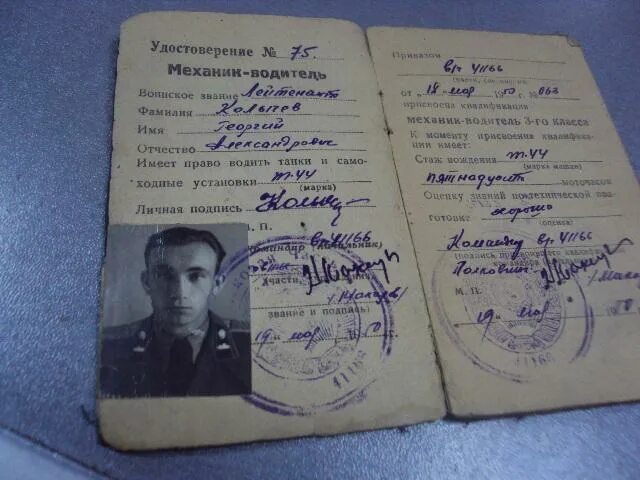 Удостоверение № 75.
Механик-водитель
Воинское звание Лейтенант
Фамилия Колычев
Имя Георгий
Отчество Александрович
Имеет право водить танки и само-
ходные установки т-44
(марка)
Личная подпись
М. П.
в/ч 41166
(Командир (начальник)
части,
звание и подпись)
19 " мая 50 г.
41166
Приказом
в/ч 41166
от " 18 " мая 1950 г. № 063
присвоена квалификация
механик-водитель 3-го класса
К моменту присвоения квалифика-
ции имеет:
Стаж вождения т-44
(марка машин)
пятнадцать моточасов
Оценку знаний по технической под-
готовке хорошо
(оценка)
Командир в/ч 41166
Полковник
М. П.
" 19 "
41166